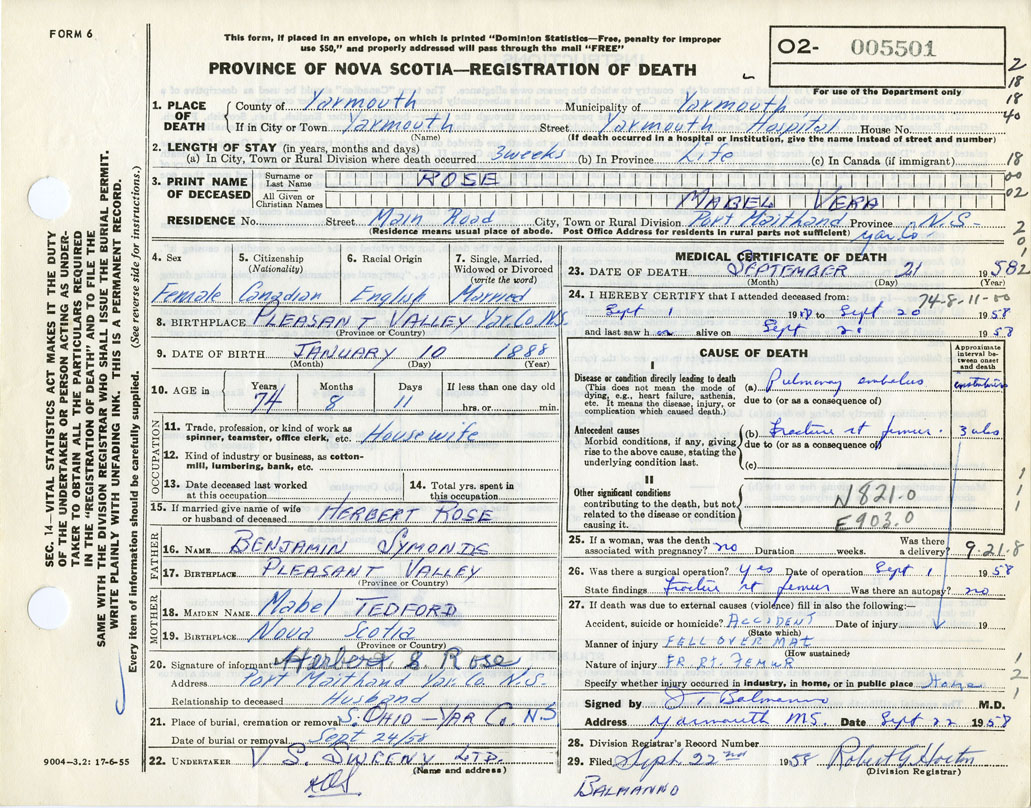 FORM 6
This form, if placed in an envelope, on which is printed "Dominion Statistics—Free, penalty for improper
use $50," and properly addressed will pass through the mail "FREE"
O2- 005501
For use of the Department only
PROVINCE OF NOVA SCOTIA—REGISTRATION OF DEATH
2
18
18
40
18
00
02
2
0
1
1. PLACE OF DEATH
County of Yarmouth Municipality of Yarmouth
If in City or Town Yarmouth Street Yarmouth Hospital House No.
(Name) (If death occurred in a hospital or institution, give the name instead of street and number)
2. LENGTH OF STAY (in years, months and days)
(a) In City, Town or Rural Division where death occurred 3 weeks (b) In Province Life (c) In Canada (if immigrant)
3. PRINT NAME OF DECEASED
Surname or Last Name ROSE
All Given or Christian Names MABEL VERA
RESIDENCE No. Street Main Road City, Town or Rural Division Port Maitland Province N.S.
(Residence means usual place of abode. Post Office Address for residents in rural parts not sufficient) Yar. Co
4. Sex
Female
5. Citizenship
(Nationality)
Canadian
6. Racial Origin
English
7. Single, Married, Widowed or Divorced
(write the word)
Married
8. BIRTHPLACE PLEASANT VALLEY Yar. Co N.S.
(Province or Country)
9. DATE OF BIRTH JANUARY 10 1888
(Month) (Day) (Year)
10. AGE in Years 74 Months 8 Days 11 If less than one day old
hrs. or min.
OCCUPATION
11. Trade, profession, or kind of work as
spinner, teamster, office clerk, etc. Housewife
12. Kind of industry or business, as cotton-
mill, lumbering, bank, etc.
13. Date deceased last worked
at this occupation
14. Total yrs. spent in
this occupation
15. If married give name of wife
or husband of deceased HERBERT ROSE
FATHER
16. NAME BENJAMIN SYMONDS
17. BIRTHPLACE PLEASANT VALLEY
(Province or Country)
MOTHER
18. MAIDEN NAME Mabel TEDFORD
19. BIRTHPLACE Nova Scotia
(Province or Country)
20. Signature of informant Herbert S. Rose
Address Port Maitland Yar. Co. N.S.
Relationship to deceased Husband
21. Place of burial, cremation or removal S. OHIO — YAR Co. NS
Date of burial or removal Sept 24/58
22. UNDERTAKER V S. SWEENY LTD.
(Name and address)
MEDICAL CERTIFICATE OF DEATH
23. DATE OF DEATH SEPTEMBER 21 1958
(Month) (Day) (Year)
2
24. I HEREBY CERTIFY that I attended deceased from: 74-8-11-00
Sept 1 19 to Sept 20 1958
and last saw h alive on Sept 1958
CAUSE OF DEATH
Approximate interval between onset and death
I
Disease or condition directly leading to death
(This does not mean the mode of
dying, e.g., heart failure, asthenia,
etc. It means the disease, injury, or
complication which caused death.)
(a) Pulmonary embolus
due to (or as a consequence of)
Antecedent causes
Morbid conditions, if any, giving
rise to the above cause, stating the
underlying condition last.
(b) Fracture rt femur. 3
due to (or as a consequence of)
(c)
II
Other significant conditions
contributing to the death, but not
related to the disease or condition
causing it.
N821.0
E903.0
1
1
1
25. If a woman, was the death
associated with pregnancy? no Duration weeks. Was there
a delivery? 9-21-8
26. Was there a surgical operation? yes Date of operation Sept 1 1958
State findings Fracture rt femur Was there an autopsy? no
27. If death was due to external causes (violence) fill in also the following:—
Accident, suicide or homicide? ACCIDENT Date of injury 19
(State which)
Manner of injury FELL OVER MAT
(How sustained)
Nature of injury FR. RT. FEMUR
Specify whether injury occurred in industry, in home, or in public place Home
1
2
1
Signed by Balmanno M.D.
Address Yarmouth NS. Date Sept 22 1958
28. Division Registrar's Record Number
29. Filed Sept. 22nd 1958 Robert G. Horton
(Division Registrar)
BALMANNO
SEC. 14—VITAL STATISTICS ACT MAKES IT THE DUTY
OF THE UNDERTAKER OR PERSON ACTING AS UNDER-
TAKER TO OBTAIN ALL THE PARTICULARS REQUIRED
IN THE "REGISTRATION OF DEATH" AND TO FILE THE
SAME WITH THE DIVISION REGISTRAR WHO SHALL ISSUE THE BURIAL PERMIT.
WRITE PLAINLY WITH UNFADING INK. THIS IS A PERMANENT RECORD.
Every item of information should be carefully supplied. (See reverse side for instructions.)
9004—3.2: 17-6-55